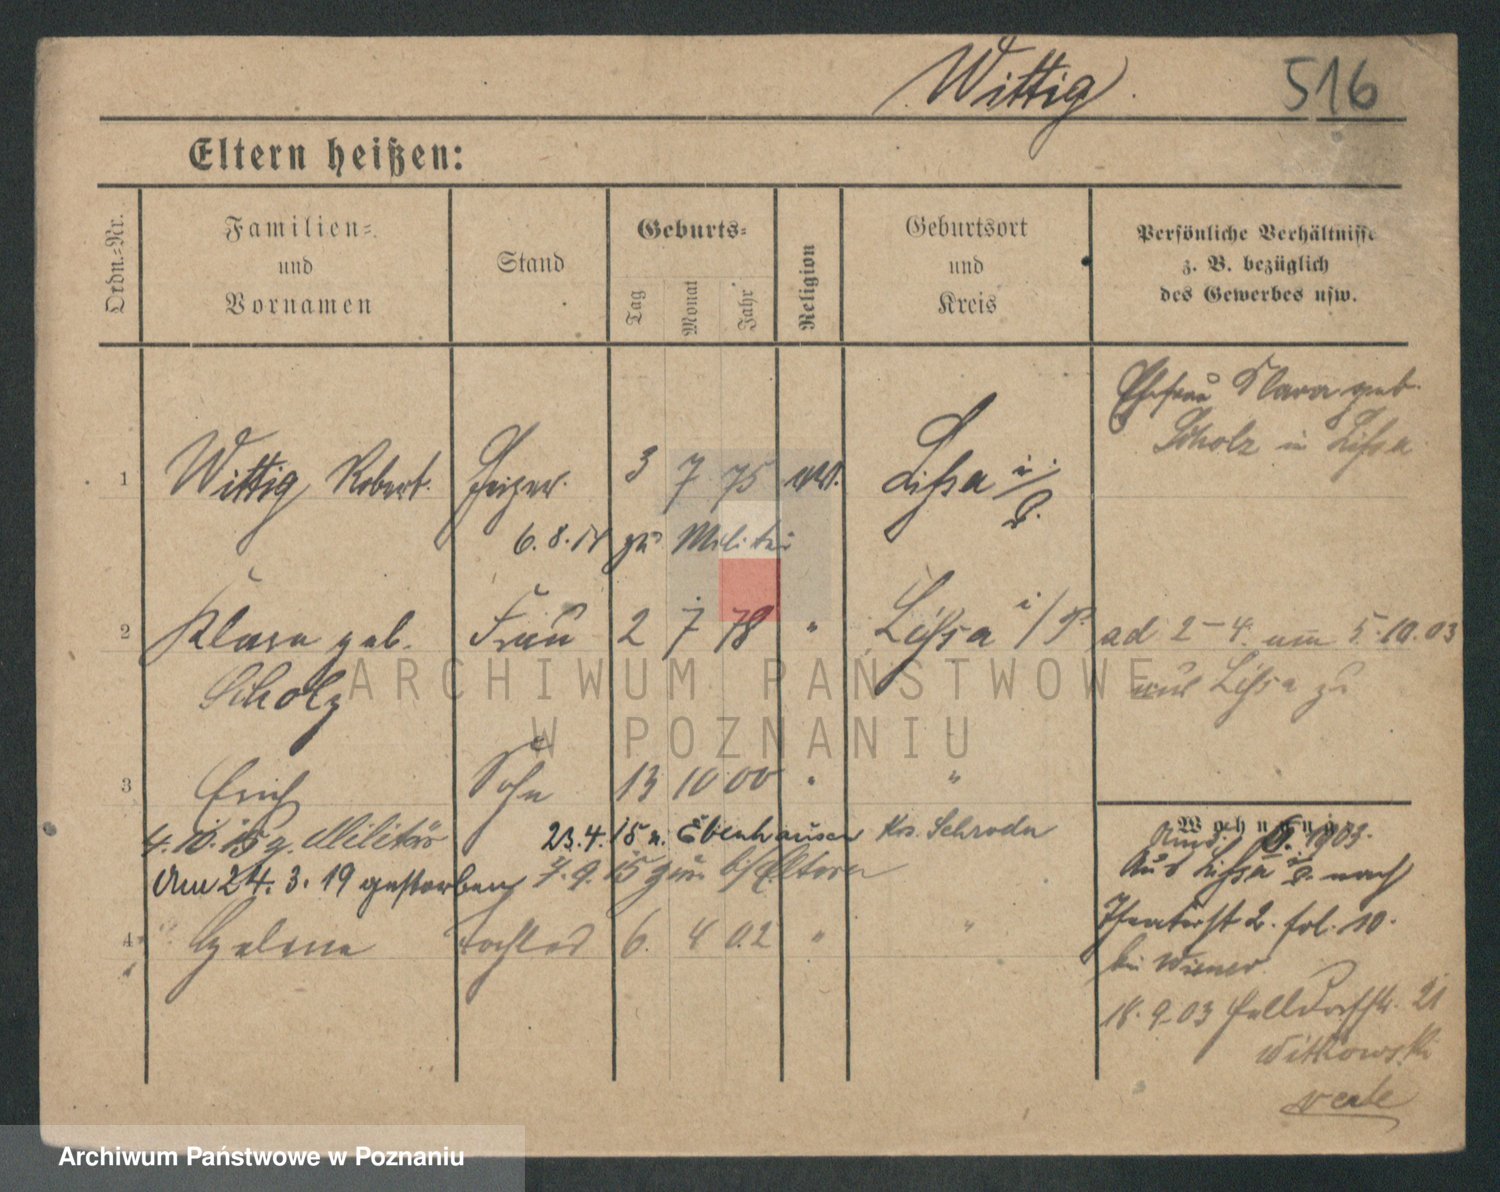 Wittig 516
Eltern heißen:
Ordn.-Nr.
Familien-
und
Vornamen
Stand
Geburts-
Tag
Monat
Jahr
Religion
Geburtsort
und
Kreis
Persönliche Verhältnisse
z. B. bezüglich
des Gewerbes usw.
Ehefrau Klara geb.
Scholz in Lissa
1 Wittig Robert. Heizer. 3 7 75 Lissa i/P.
6. 8. zu Militär
2 Klara geb. Frau 2 7 78 " Lissa i/P. ad 2-4. am 5.10.03
Scholz aus Lissa zu
3 Erich Sohn 13 10 00 " "
4. 10. 15 z. Militär 23. 4. 15 n. Ebenhausen Krs. Schroda
Am 24. 3. 19 gestorben 7. 9. 15 zur bei Eltern
4 Helene Tochter 6. 4 02 " "
Wohnung
1903.
Aus Lissa i. P. nach
Theaterstr 2. fol. 10.
bei Wiener.
18. 9. 03 Halldorfstr. 21
Witkowski
ARCHIWUM PAŃSTWOWE
W POZNANIU
Archiwum Państwowe w Poznaniu